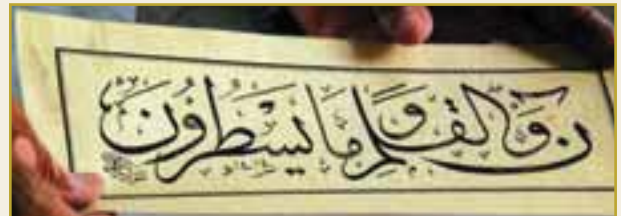 نٓ وَالْقَلَمِ وَمَا يَسْطُرُونَ